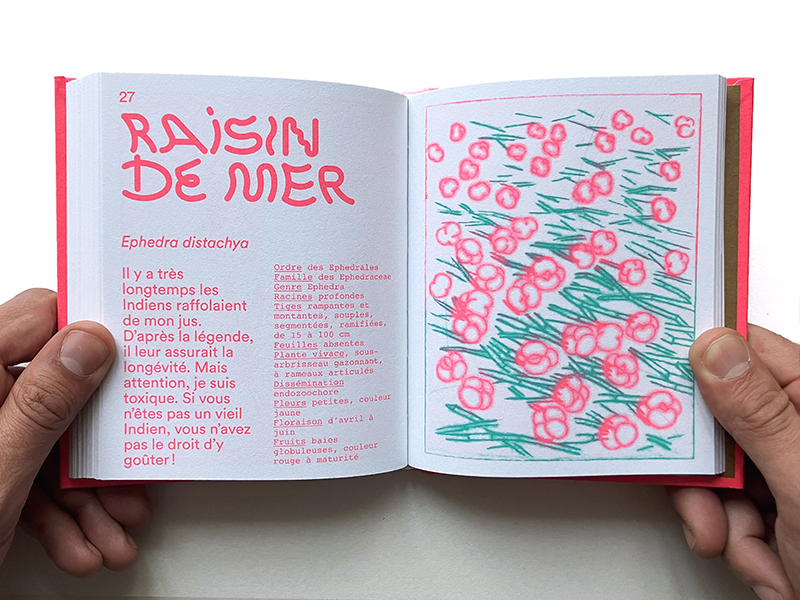 27
RAiSIN
DE MER
Ephedra distachya
Il y a très
longtemps les
Indiens raffolaient
de mon jus.
D'après la légende,
il leur assurait la
longévité. Mais
attention, je suis
toxique. Si vous
n'êtes pas un vieil
Indien, vous n'avez
pas le droit d'y
goûter !
Ordre des Ephedrales
Famille des Ephedraceae
Genre Ephedra
Racines profondes
Tiges rampantes et
montantes, souples,
segmentées, ramifiées,
de 15 à 100 cm
Feuilles absentes
Plante vivace, sous-
arbrisseau gazonnant,
à rameaux articulés
Dissémination
endozoochore
Fleurs petites, couleur
jaune
Floraison d'avril à
juin
Fruits baies
globuleuses, couleur
rouge à maturité